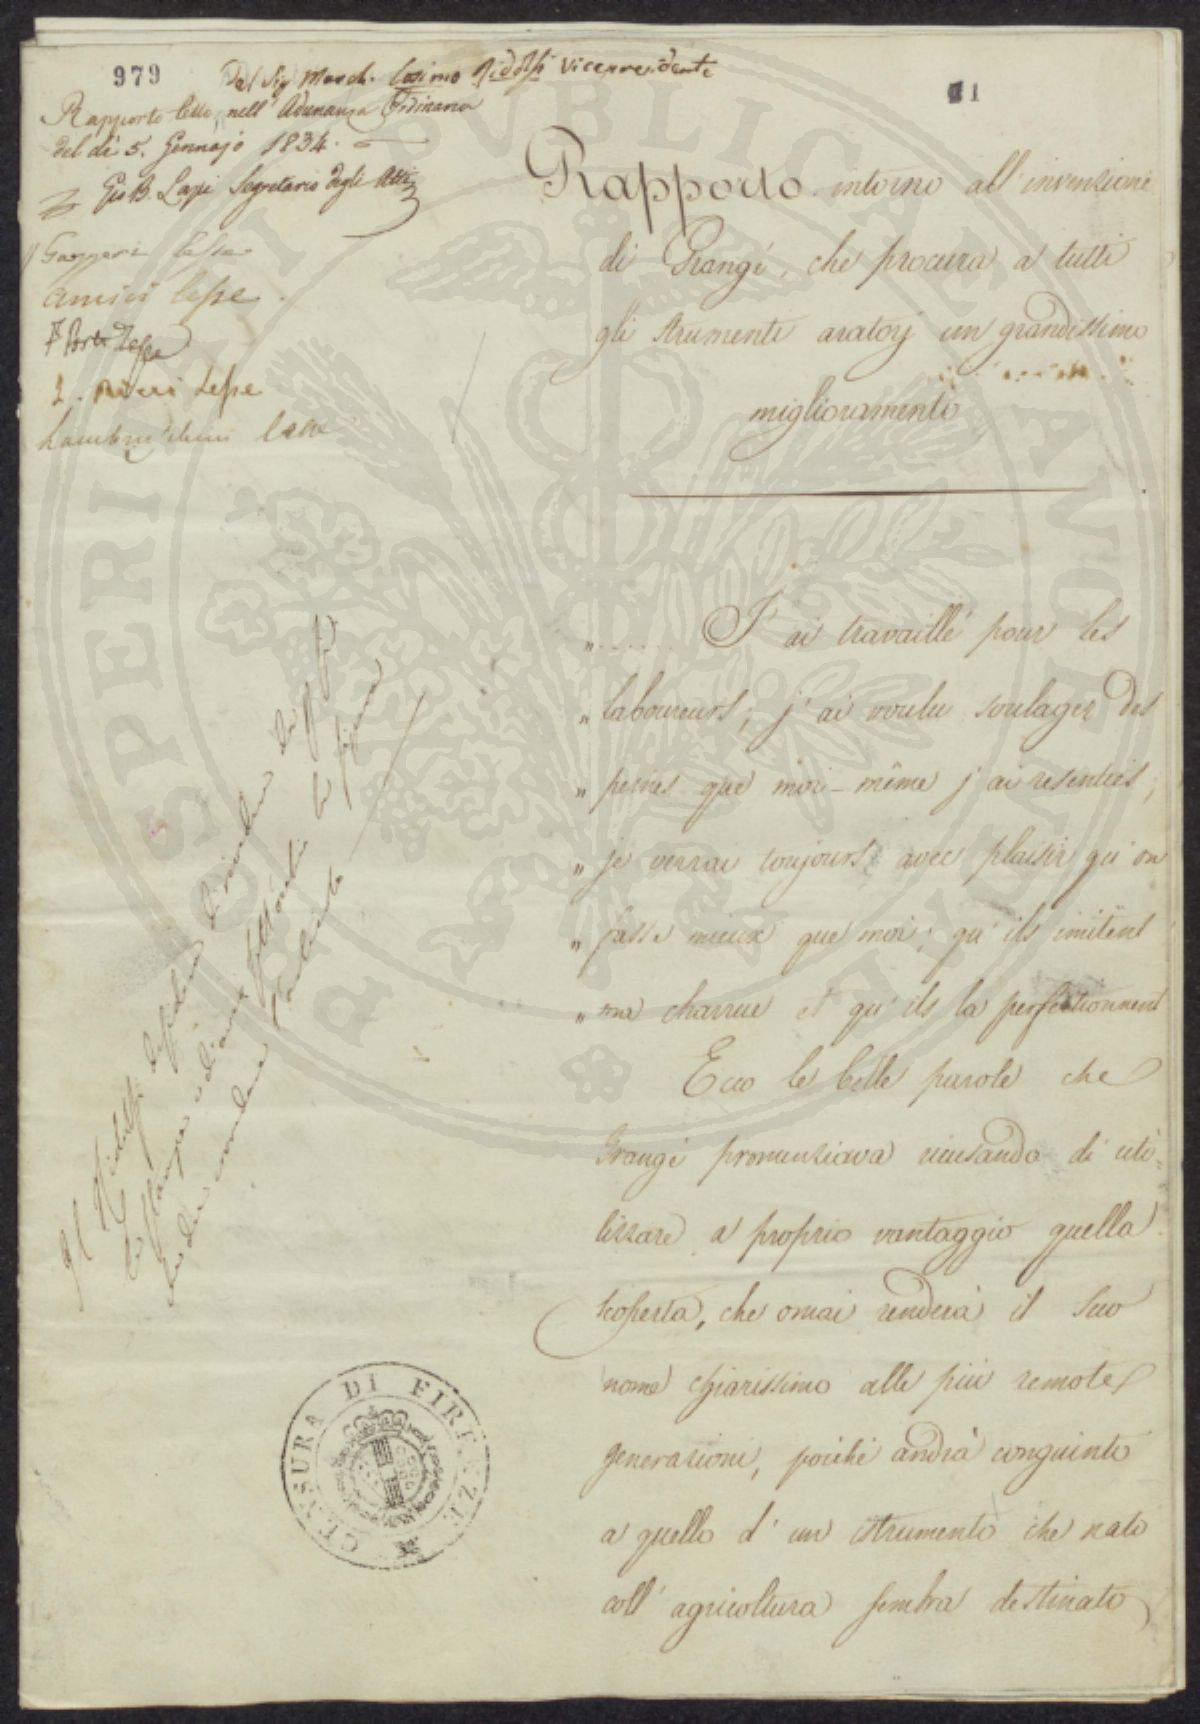 979
Del Sig. March. Cosimo Ridolfi Vicepresidente
Rapporto letto nell' Adunanza Ordinaria
del dì 5. Gennajo 1834.
Gio B. Lapi Segretario degli Atti
1
Gazzeri lesse
Amici lesse.
lesse
L. Ricci lesse
Lambruschini lesse
Rapporto intorno all' invenzione
di Grangé, che procura a tutti
gli strumenti aratorj un grandissimo
miglioramento
„...... J' ai travaillé pour les
„ laboureurs; j' ai voulu soulager des
„ peines que moi-même j' ai resenties;
„ je verrai toujours avec plaisir qu' on
„ fasse mieux que moi; qu' ils imitent
„ ma charrue et qu' ils la perfectionnent
Ecco le belle parole che
Grangé pronunziava ricusando di uti-
lizzare a proprio vantaggio quella
scoperta, che omai renderà il suo
nome chiarissimo alle più remote
generazioni, poichè andrà congiunto
a quello d' un istrumento che nato
coll' agricoltura sembra destinato
Il Ridolfi desidera
la stampa
la figura
CENSURA DI FIRENZE
PROSPERITATI PUBLICAE AUGENDAE